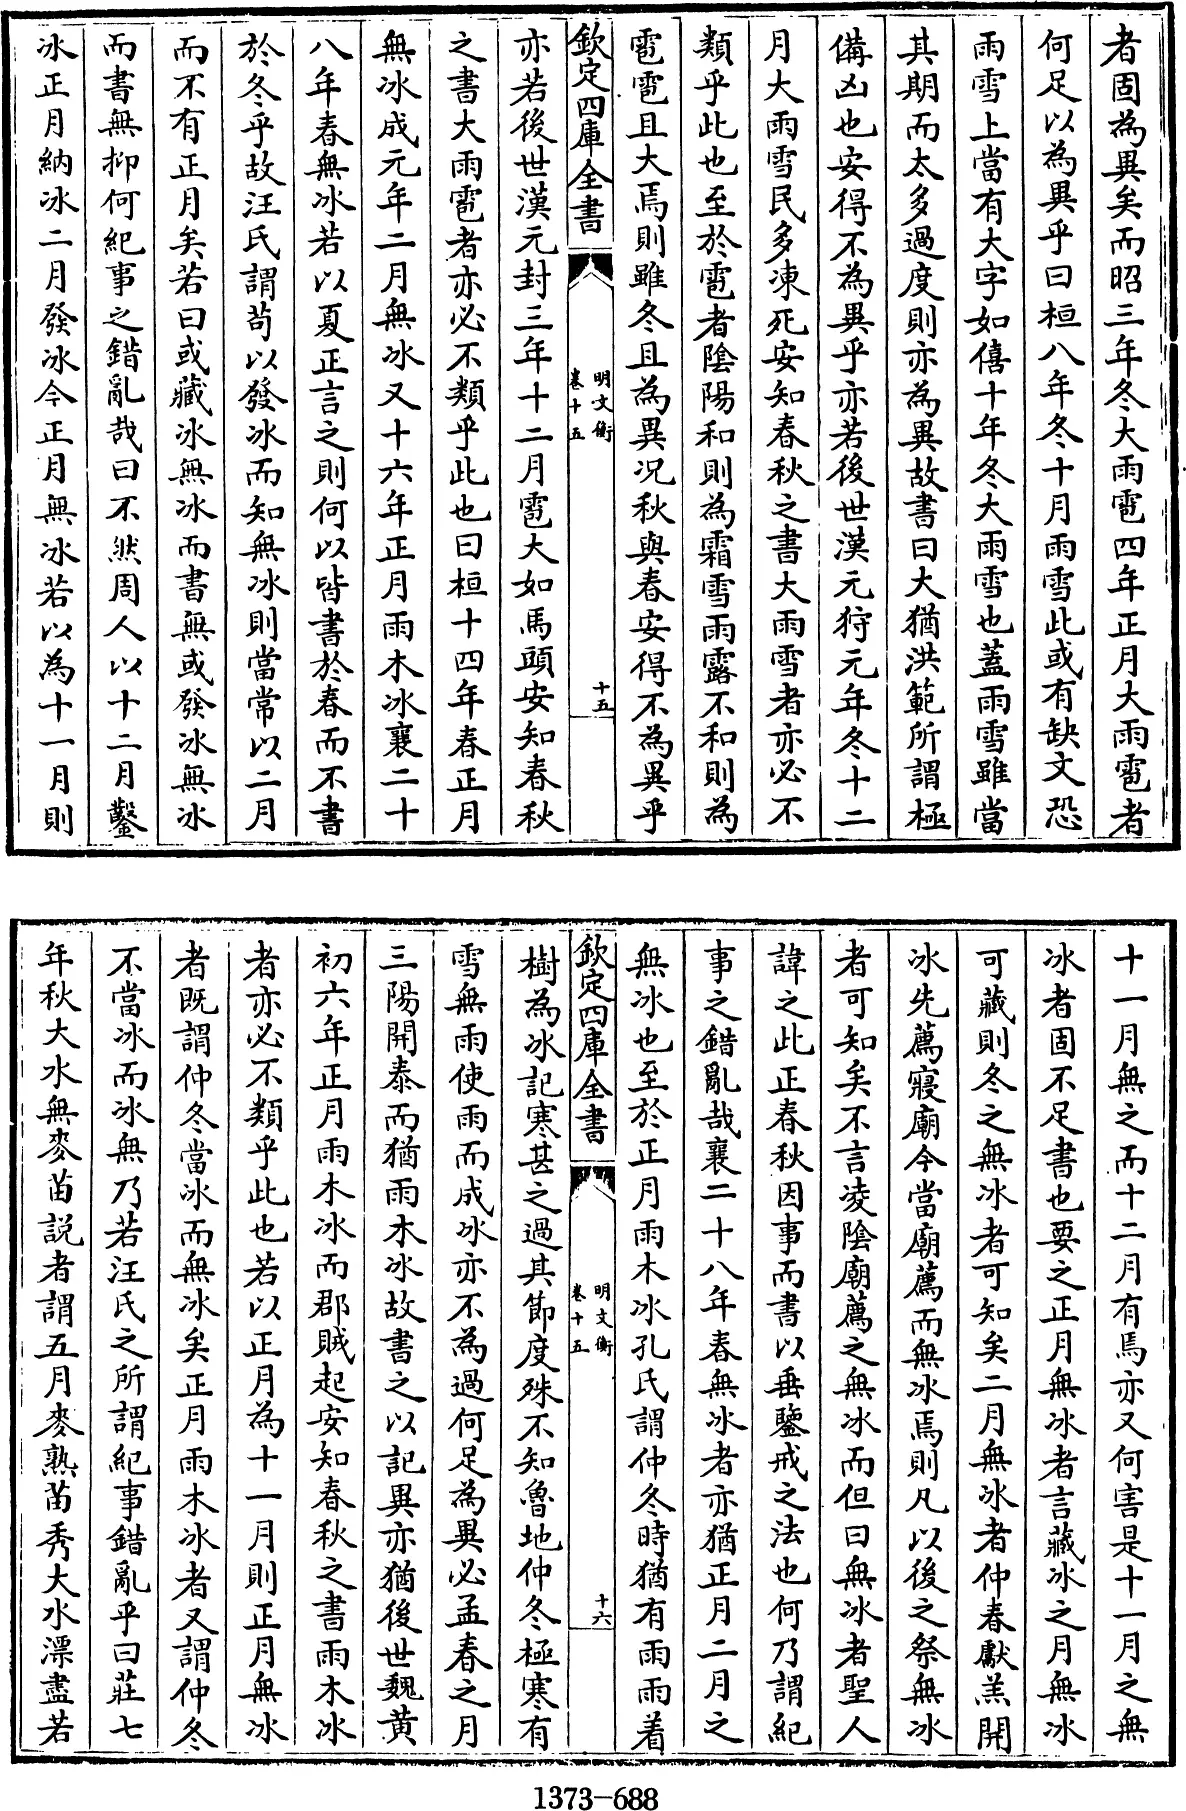 者固為異矣而昭三年冬大雨雹四年正月大雨雹者
何足以為異乎曰桓八年冬十月雨雪此或有缺文恐
雨雪上當有大字如僖十年冬大雨雪也蓋雨雪雖當
其期而太多過度則亦為異故書曰大猶洪範所謂極
備凶也安得不為異乎亦若後世漢元狩元年冬十二
月大雨雪民多凍死安知春秋之書大雨雪者亦必不
類乎此也至於雹者陰陽和則為霜雪雨露不和則為
雹雹且大焉則雖冬且為異况秋與春安得不為異乎
欽定四庫全書
明文衡
卷十五
十五
亦若後世漢元封三年十二月雹大如馬頭安知春秋
之書大雨雹者亦必不類乎此也曰桓十四年春正月
無冰成元年二月無冰又十六年正月雨木冰襄二十
八年春無冰若以夏正言之則何以皆書於春而不書
於冬乎故汪氏謂苟以發冰而知無冰則當常以二月
而不有正月矣若曰或藏冰無冰而書無或發冰無冰
而書無抑何紀事之錯亂哉曰不然周人以十二月鑿
冰正月納冰二月發冰今正月無冰若以為十一月則
十一月無之而十二月有焉亦又何害是十一月之無
冰者固不足書也要之正月無冰者言藏冰之月無冰
可藏則冬之無冰者可知矣二月無冰者仲春獻羔開
冰先薦寢廟今當廟薦而無冰焉則凡以後之祭無冰
者可知矣不言凌陰廟薦之無冰而但曰無冰者聖人
諱之此正春秋因事而書以垂鑒戒之法也何乃謂紀
事之錯亂哉襄二十八年春無冰者亦猶正月二月之
無冰也至於正月雨木冰孔氏謂仲冬時猶有雨雨着
欽定四庫全書
明文衡
卷十五
十六
樹為冰記寒甚之過其節度殊不知魯地仲冬極寒有
雪無雨使雨而成冰亦不為過何足為異必孟春之月
三陽開泰而猶雨木冰故書之以記異亦猶後世魏黄
初六年正月雨木冰而郡賊起安知春秋之書雨木冰
者亦必不類乎此也若以正月為十一月則正月無冰
者既謂仲冬當冰而無冰矣正月雨木冰者又謂仲冬
不當冰而冰無乃若汪氏之所謂紀事錯亂乎曰莊七
年秋大水無麥苗説者謂五月麥熟苗秀大水漂盡若
1373-688